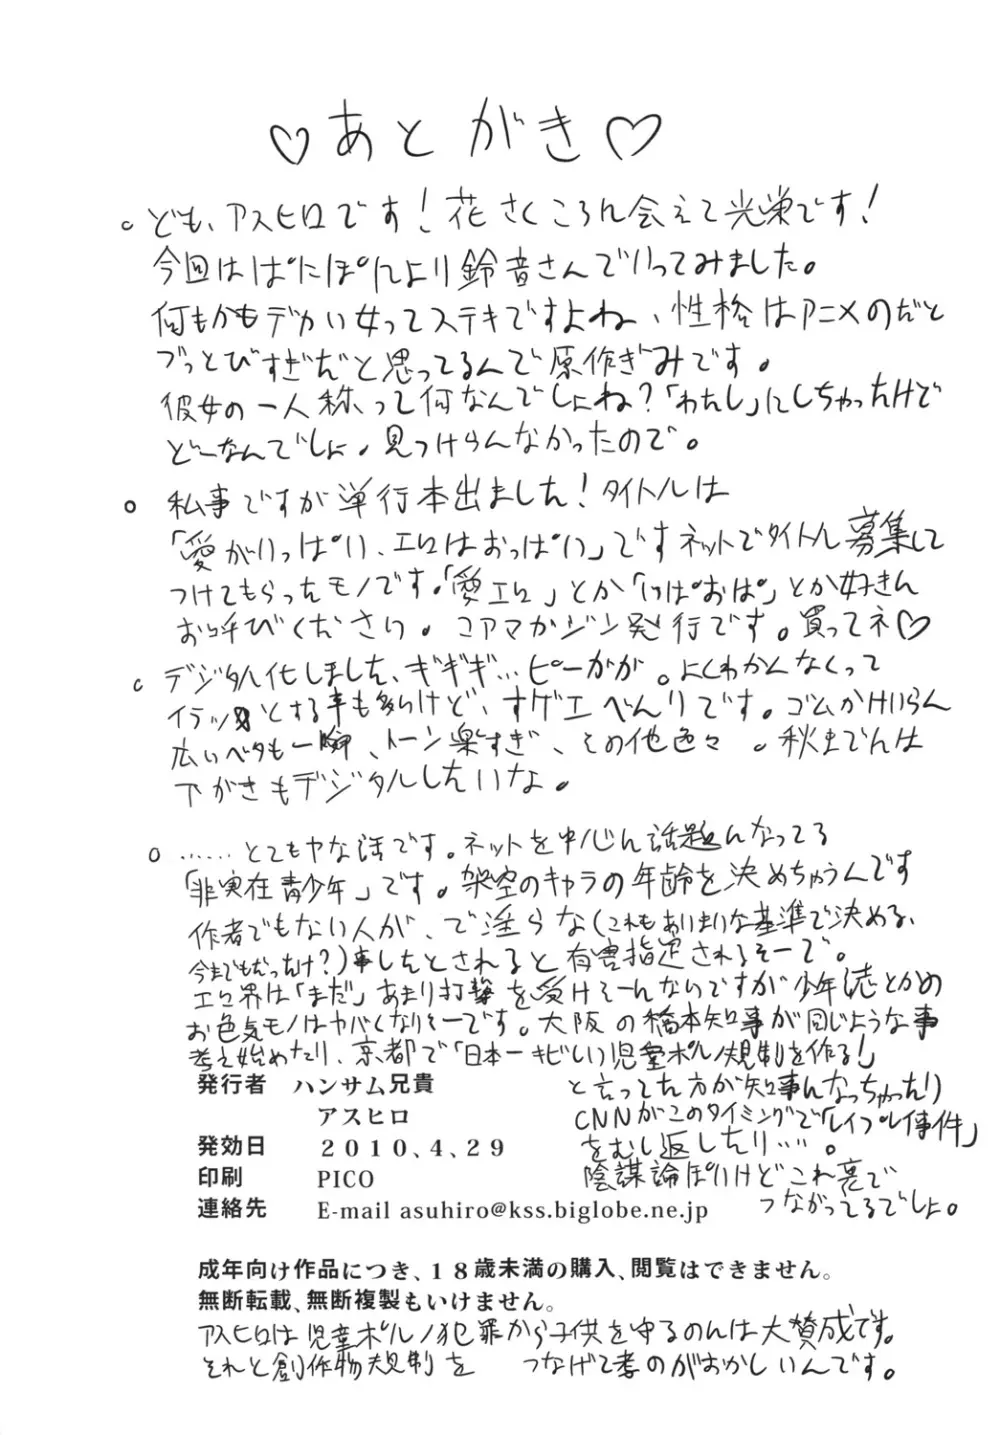 ♡あとがき♡
○ども、アスヒロです！花さくころに会えて光栄です！
今回はぱにぽにより鈴音さんでいってみました。
何もかもデカい女ってステキですよね、性格はアニメのだと
ブっとびすぎだと思ってるんで原作ぎみです。
彼女の一人称って何なんでしょね？「わたし」にしちゃったけど
どーなんでしょ。見つけらんなかったので。
○私事ですが単行本出ました！タイトルは
「愛がいっぱい、エロはおっぱい」ですネットでタイトル募集して
つけてもらったモノです。「愛エロ」とか「いぱおぱ」とか好きに
お呼びください。コアマガジン発行です。買ってネ♡
○デジタル化しました、ギギギ…ピーガガ。よくわかんなくって
イラッとする事も多いけど、すゲエべんりです。ゴムかけいらん
広いベタも一瞬、トーン楽すぎ、その他色々。秋までには
下がきもデジタルしたいな。
○……とてもヤな話です。ネットを中心に話題になってる
「非実在青少年」です。架空のキャラの年齢を決めちゃうんです
作者でもない人が、で淫らな(これもあいまいな基準で決める、
今までもだっけ？)事したとされると有害指定されるそーで。
エロ界は「まだ」あまり打撃を受けそーにないですが少年誌とかの
お色気モノはヤバくなりそーです。大阪の橋本知事が同じような事
考え始めたり、京都で「日本一キビしい児童ポルノ規制を作る！」
と言ってた方が知事になっちゃったり
CNNがこのタイミングで「レイプレイ事件」
をむし返したり……。
陰謀論ぽいけどこれ裏で
つながってるでしょ。
発行者 ハンサム兄貴
アスヒロ
発効日 ２０１０、４、２９
印刷 PICO
連絡先 E-mail asuhiro@kss.biglobe.ne.jp
成年向け作品につき、１８歳未満の購入、閲覧はできません。
無断転載、無断複製もいけません。
アスヒロは児童ポルノ犯罪から子供を守るのには大賛成です。
それと創作物規制を つなげて考のがおかしいんです。